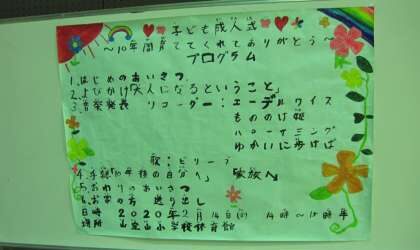 子ども成人式
〜10年間育ててくれてありがとう〜
プログラム
1.はじめのあいさつ
2.よびかけ「大人になるということ」
3.音楽発表 リコーダー:エーデルワイス
もののけ姫
ハローサミング
ゆかいに歩けば
歌:ビリーブ
4.手紙「10年後の自分へ」「家族へ」
5.おわりのあいさつ
6.お家の方 送り出し
日時 2020年2月14日 14時〜15時半
場所 小学校体育館